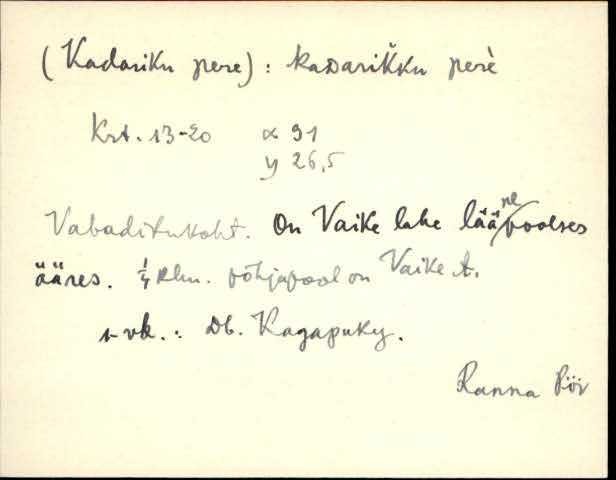 (Kadariku pere): kaᴅarik̆ku perè
Krt. 13-20 x 91
y 26,5
Vabaditukoht. On Vaike lahe läänepoolses
ääres. ¼ klm. põhjapool on Vaike t.
1-vk.: Db. Kagapuky.
Ranna Pöi